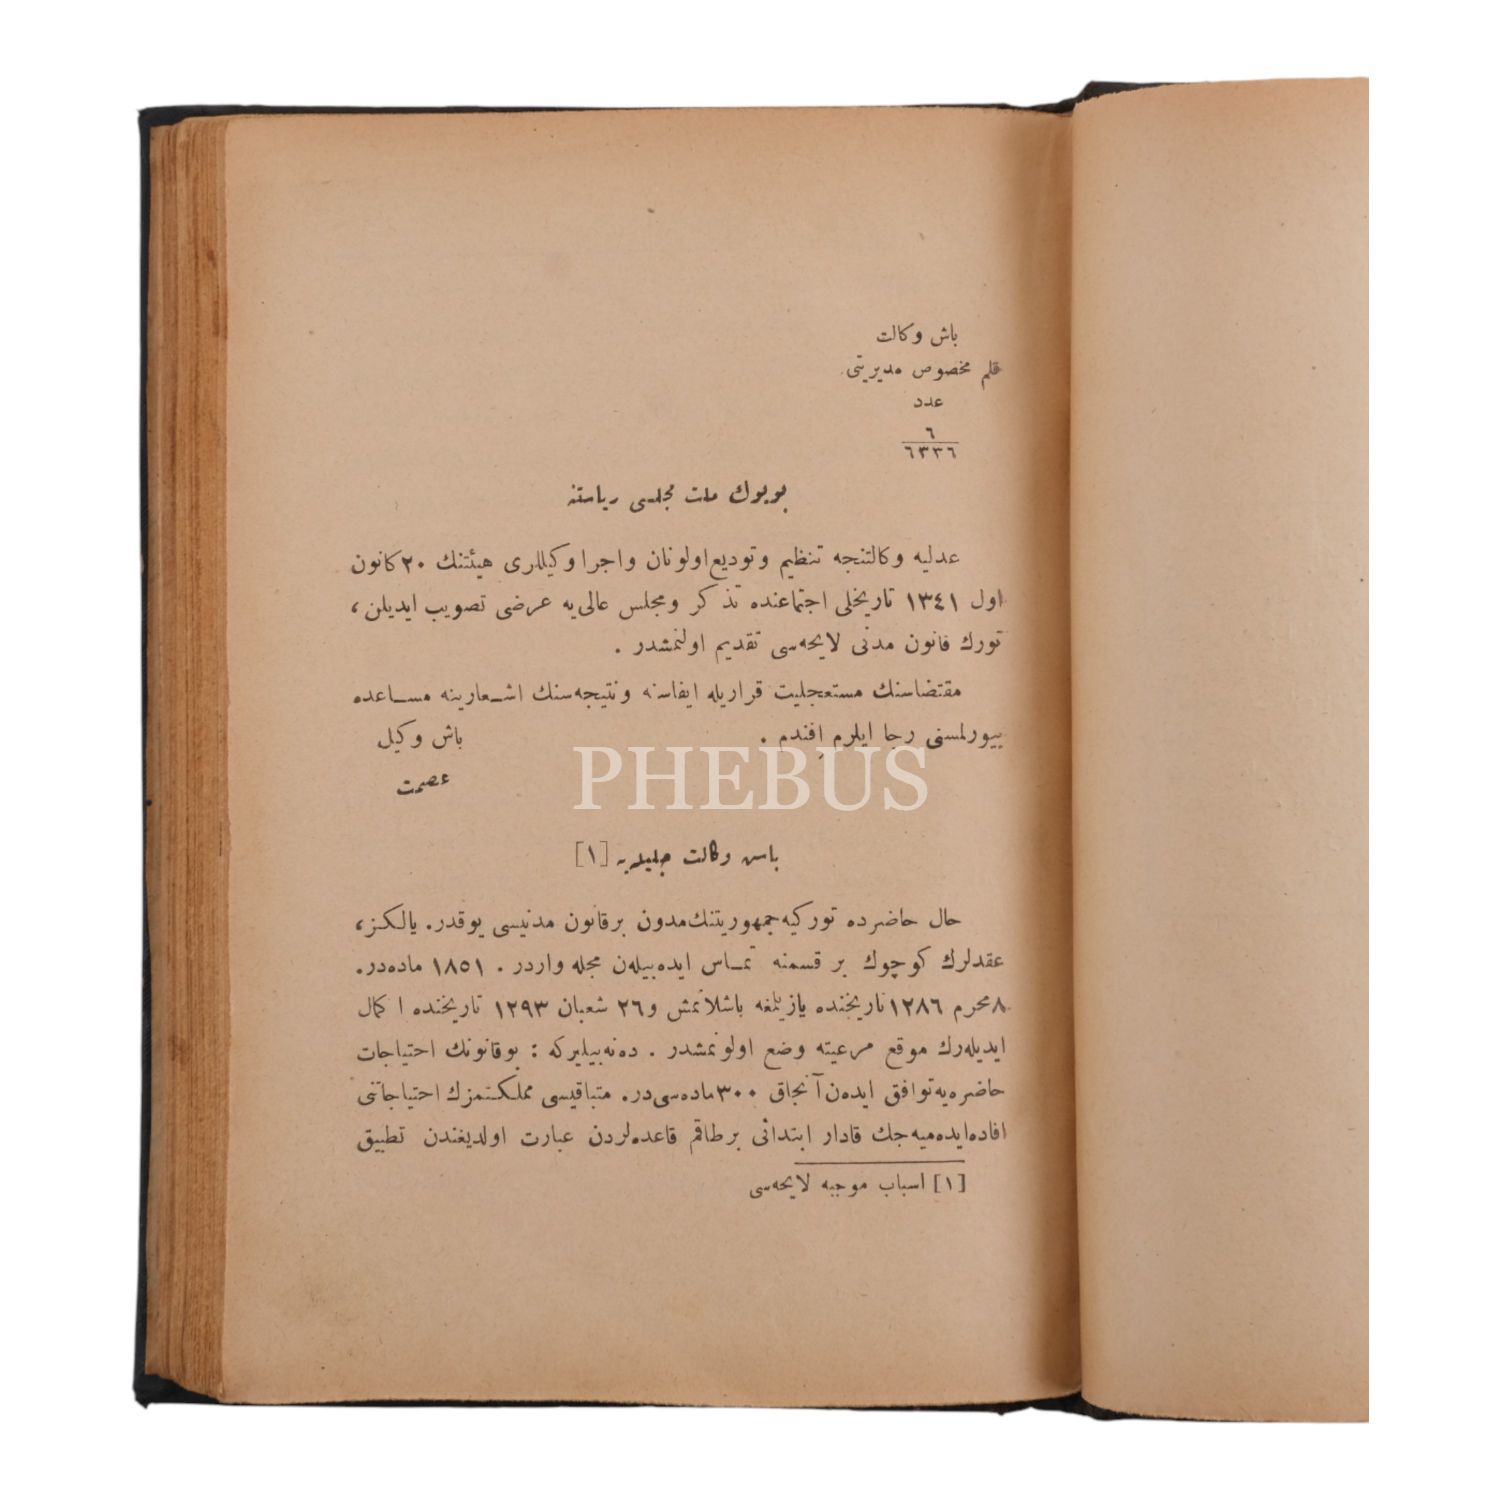 باش وكالت
قلم مخصوص مديريتی
عدد
٦
٦٣٣٦
بويوك ملت مجلسی رياستنه
عدليه وكالتنجه تنظيم وتوديع اولونان واجرا وكيللری هيئتنك ٢٠ كانون
اول ١٣٤١ تاريخلی اجتماعنده تذكر ومجلس عالی‌يه عرضی تصويب ايديلن،
تورك قانون مدنی لايحه‌سی تقديم اولنمشدر .
مقتضاسنك مستعجليت قراريله ايفاسنه ونتيجه‌سنك اشعارينه مساعده
بيورلمسنی رجا ايلرم افندم .
باش وكيل
عصمت
PHEBUS
باش وكالت جليله‌يه [١]
حال حاضرده توركيه جمهوريتنك مدون برقانون مدنيسی يوقدر. يالكز،
عقدلرك كوچوك بر قسمنه تماس ايده‌بيله‌ن مجله واردر . ١٨٥١ ماده‌در.
٨ محرم ١٢٨٦ تاريخنده يازيلمغه باشلانمش و٢٦ شعبان ١٢٩٣ تاريخنده اكمال
ايديله‌رك موقع مرعيته وضع اولونمشدر . ده‌نه‌بيليركه : بوقانونك احتياجات
حاضره‌يه توافق ايده‌ن آنجاق ٣٠٠ ماده‌سی‌در. متباقيسی مملكتمزك احتياجاتنی
افاده ايده‌ميه‌جك قادار ابتدائی برطاقم قاعده‌لردن عبارت اولديغندن تطبيق
[١] اسباب موجبه لايحه‌سی